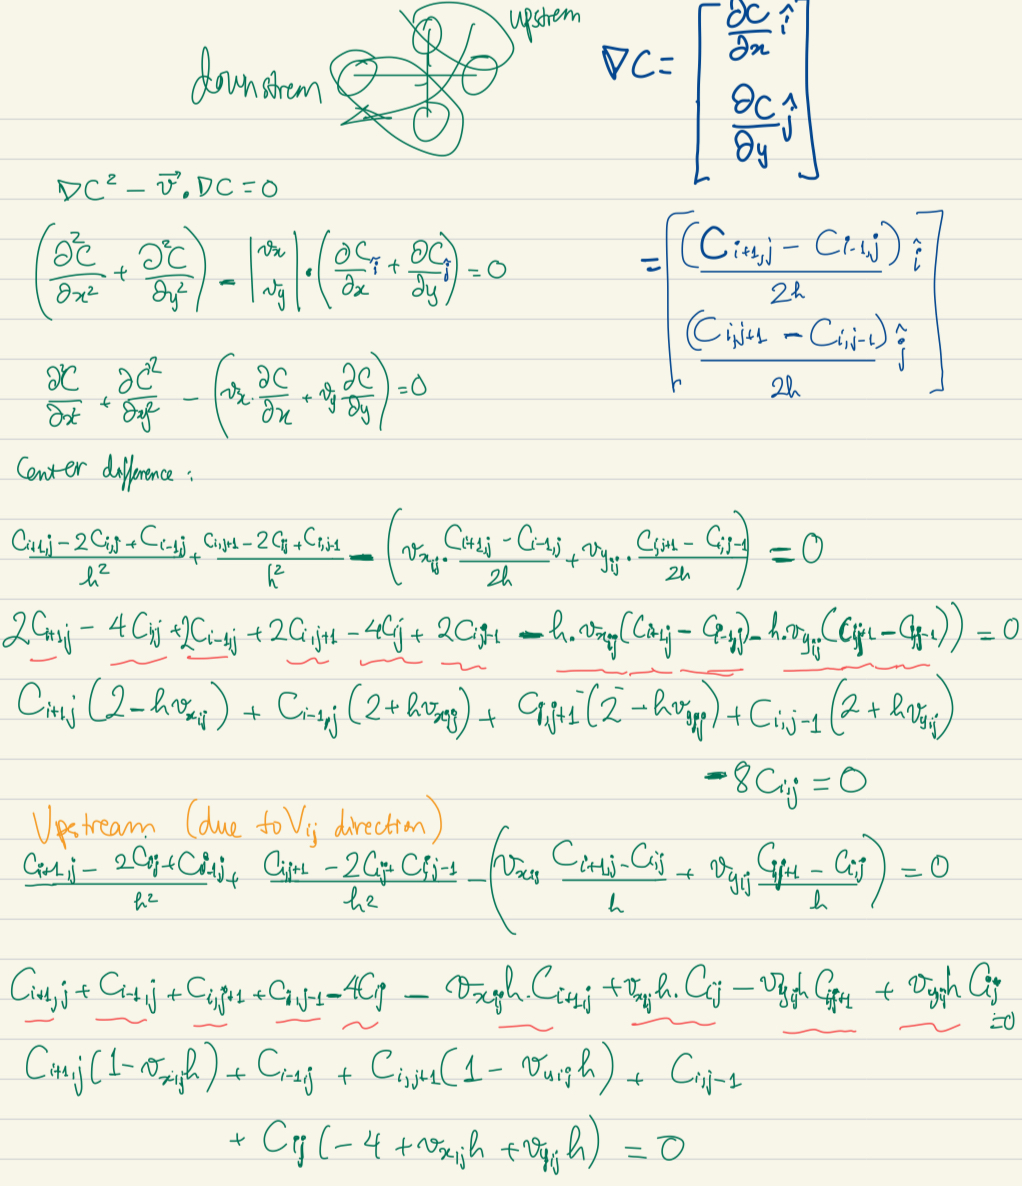 upstrem
downstrem
∇C = [ ∂C/∂x î
∂C/∂y ĵ ]
= [ (C_{i+1,j} - C_{i-1,j}) î / 2h
(C_{i,j+1} - C_{i,j-1}) ĵ / 2h ]
∇C² - v⃗ . ∇C = 0
(∂²C/∂x² + ∂²C/∂y²) - |v_x v_y| · (∂C/∂x î + ∂C/∂y ĵ) = 0
∂²C/∂x² + ∂C²/∂y² - (v_x . ∂C/∂x + v_y ∂C/∂y) = 0
Center difference :
(C_{i+1,j} - 2C_{i,j} + C_{i-1,j})/h² + (C_{i,j+1} - 2C_{ij} + C_{i,j-1})/h² - (v_{x_{ij}} . (C_{i+1,j} - C_{i-1,j})/2h + v_{y_{ij}} . (C_{i,j+1} - C_{i,j-1})/2h) = 0
2C_{i+1,j} - 4C_{ij} + 2C_{i-1,j} + 2C_{i,j+1} - 4C_{ij} + 2C_{i,j-1} - h.v_{x_{ij}}(C_{i+1,j} - C_{i-1,j}) - h.v_{y_{ij}}(C_{i,j+1} - C_{i,j-1})) = 0
C_{i+1,j}(2 - hv_{x_{ij}}) + C_{i-1,j}(2 + hv_{x_{ij}}) + C_{i,j+1}(2 - hv_{y_{ij}}) + C_{i,j-1}(2 + hv_{y_{ij}})
- 8C_{ij} = 0
Upstream (due to V_{ij} direction)
(C_{i+1,j} - 2C_{ij} + C_{i-1,j})/h² + (C_{i,j+1} - 2C_{ij} + C_{i,j-1})/h² - (v_{x_{ij}} (C_{i+1,j} - C_{ij})/h + v_{y_{ij}} (C_{i,j+1} - C_{ij})/h) = 0
C_{i+1,j} + C_{i-1,j} + C_{i,j+1} + C_{i,j-1} - 4C_{ij} - v_{x_{ij}}h.C_{i+1,j} + v_{x_{ij}}h.C_{ij} - v_{y_{ij}}h C_{i,j+1} + v_{y_{ij}}h C_{ij} = 0
C_{i+1,j}(1 - v_{x_{ij}}h) + C_{i-1,j} + C_{i,j+1}(1 - v_{y_{ij}}h) + C_{i,j-1}
+ C_{ij}(-4 + v_{x_{ij}}h + v_{y_{ij}}h) = 0